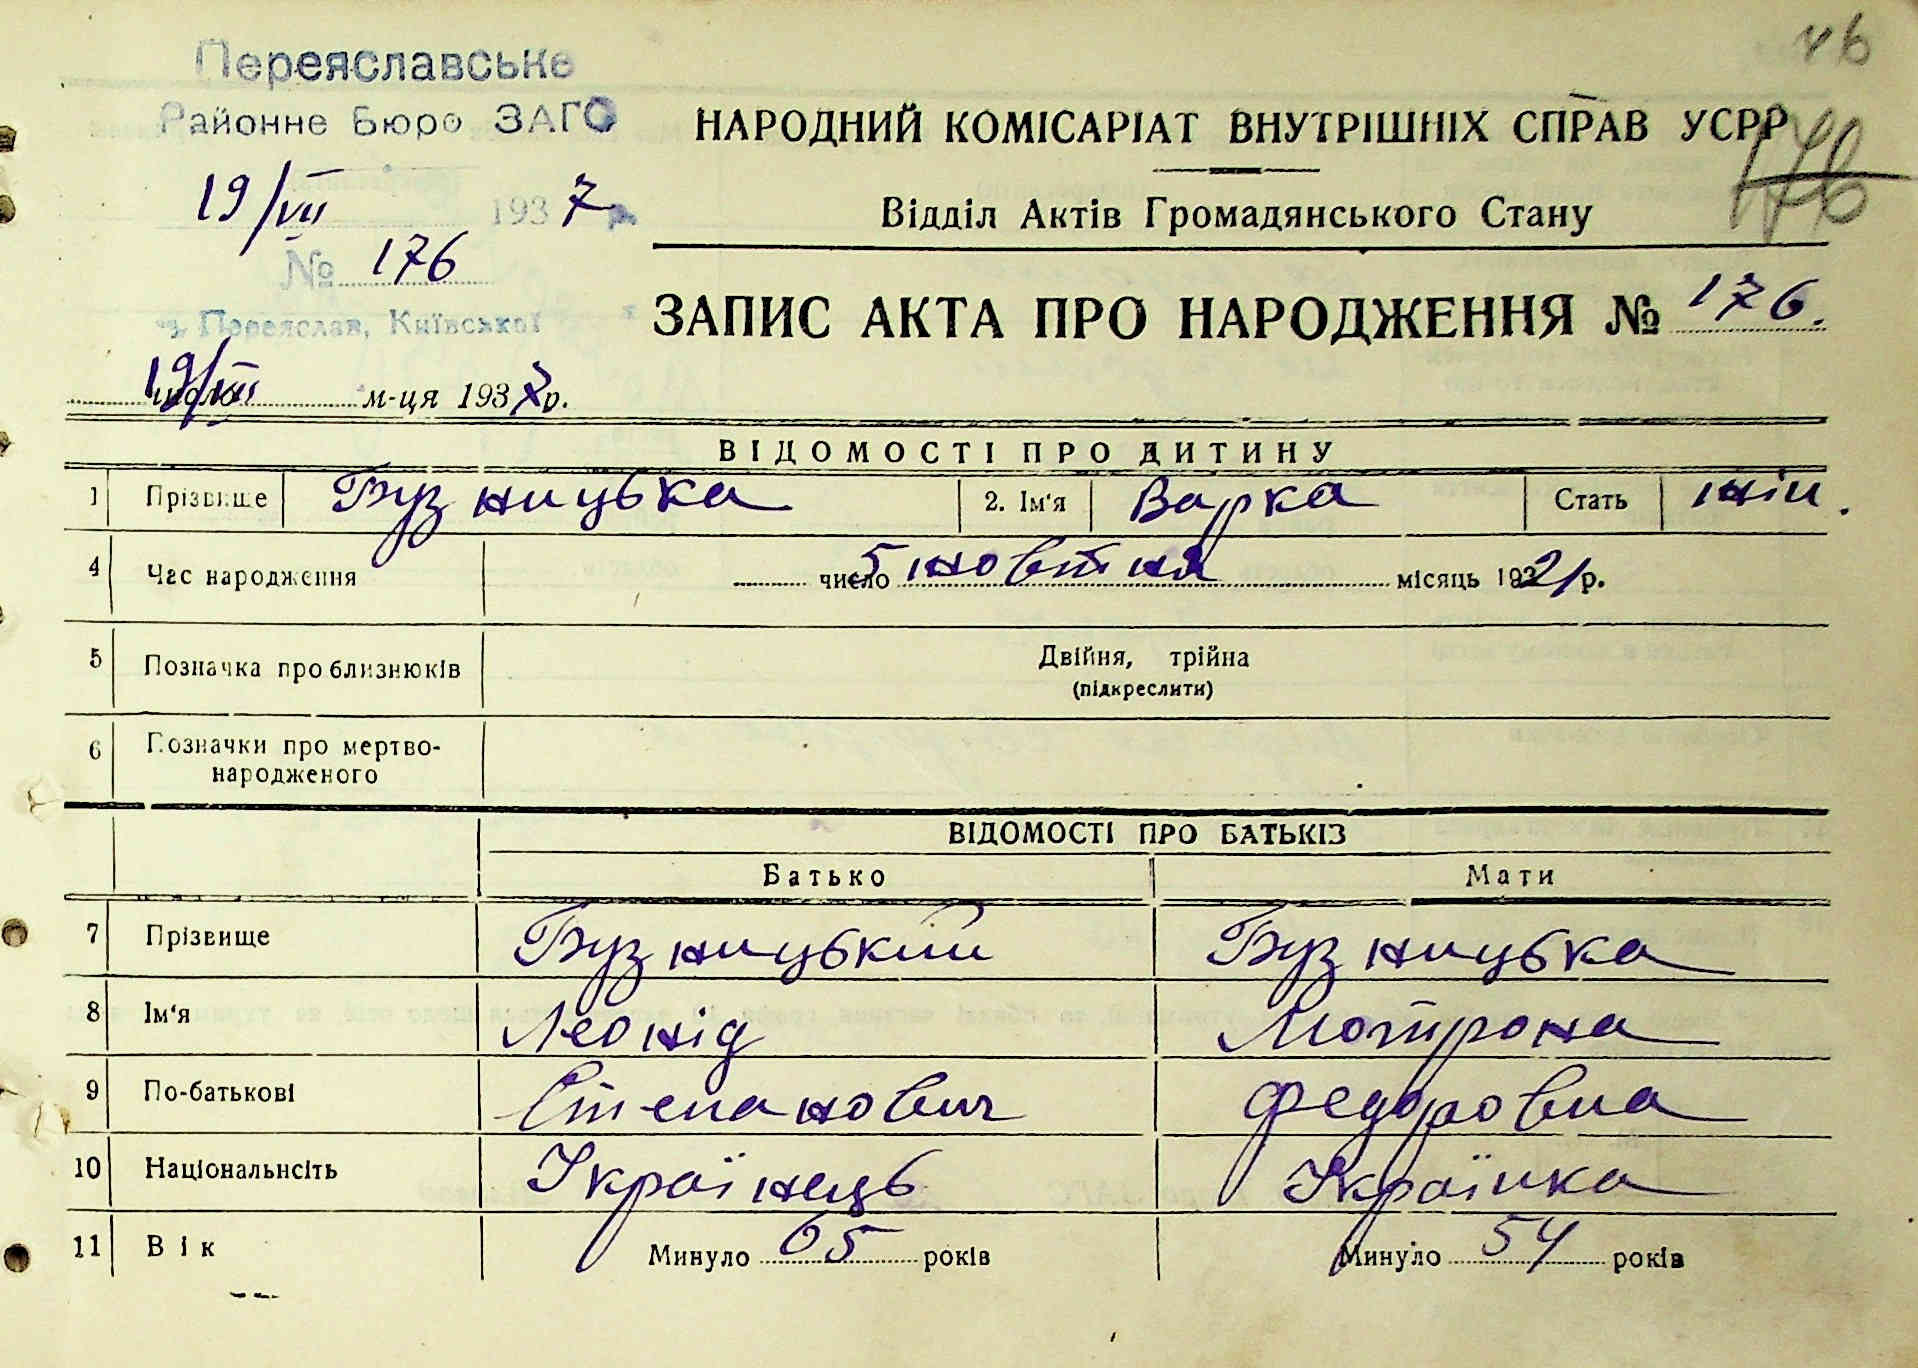 Переяславське
Районне Бюро ЗАГС
19/VII 1937 р.
№ 176
м. Переяслав, Київської
76
176
НАРОДНИЙ КОМІСАРІАТ ВНУТРІШНІХ СПРАВ УСРР
Відділ Актів Громадянського Стану
ЗАПИС АКТА ПРО НАРОДЖЕННЯ № 176.
19/VII число м-ця 1937 р.
ВІДОМОСТІ ПРО ДИТИНУ
1 Прізвище Бузницька 2. Ім'я Варка Стать жін.
4 Час народження 5 число жовтня місяць 1921 р.
5 Позначка про близнюків Двійня, трійна
(підкреслити)
6 Позначки про мертво-
народженого
ВІДОМОСТІ ПРО БАТЬКІВ
Батько Мати
7 Прізвище Бузницький Бузницька
8 Ім'я Леонід Мотрона
9 По-батькові Степанович Федоровна
10 Національність Українець Українка
11 Вік Минуло 65 років Минуло 54 років